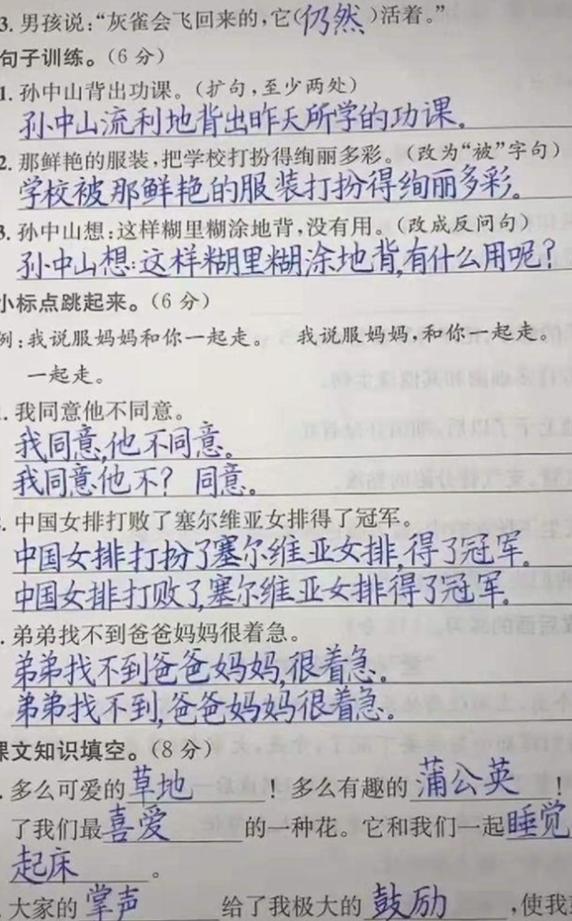 3. 男孩说:“灰雀会飞回来的,它(仍然)活着。”
句子训练。(6分)
1. 孙中山背出功课。(扩句,至少两处)
孙中山流利地背出昨天所学的功课。
2. 那鲜艳的服装,把学校打扮得绚丽多彩。(改为“被”字句)
学校被那鲜艳的服装打扮得绚丽多彩。
3. 孙中山想:这样糊里糊涂地背,没有用。(改成反问句)
孙中山想:这样糊里糊涂地背,有什么用呢?
小标点跳起来。(6分)
例:我说服妈妈和你一起走。 我说服妈妈,和你一起走。
一起走。
. 我同意他不同意。
我同意,他不同意。
我同意他不? 同意。
. 中国女排打败了塞尔维亚女排得了冠军。
中国女排打扮了塞尔维亚女排,得了冠军.
中国女排打败了,塞尔维亚女排得了冠军.
. 弟弟找不到爸爸妈妈很着急。
弟弟找不到爸爸妈妈,很着急。
弟弟找不到,爸爸妈妈很着急。
课文知识填空。(8分)
. 多么可爱的草地! 多么有趣的蒲公英!
了我们最喜爱的一种花。它和我们一起睡觉
起床。
. 大家的掌声给了我极大的鼓励,使我